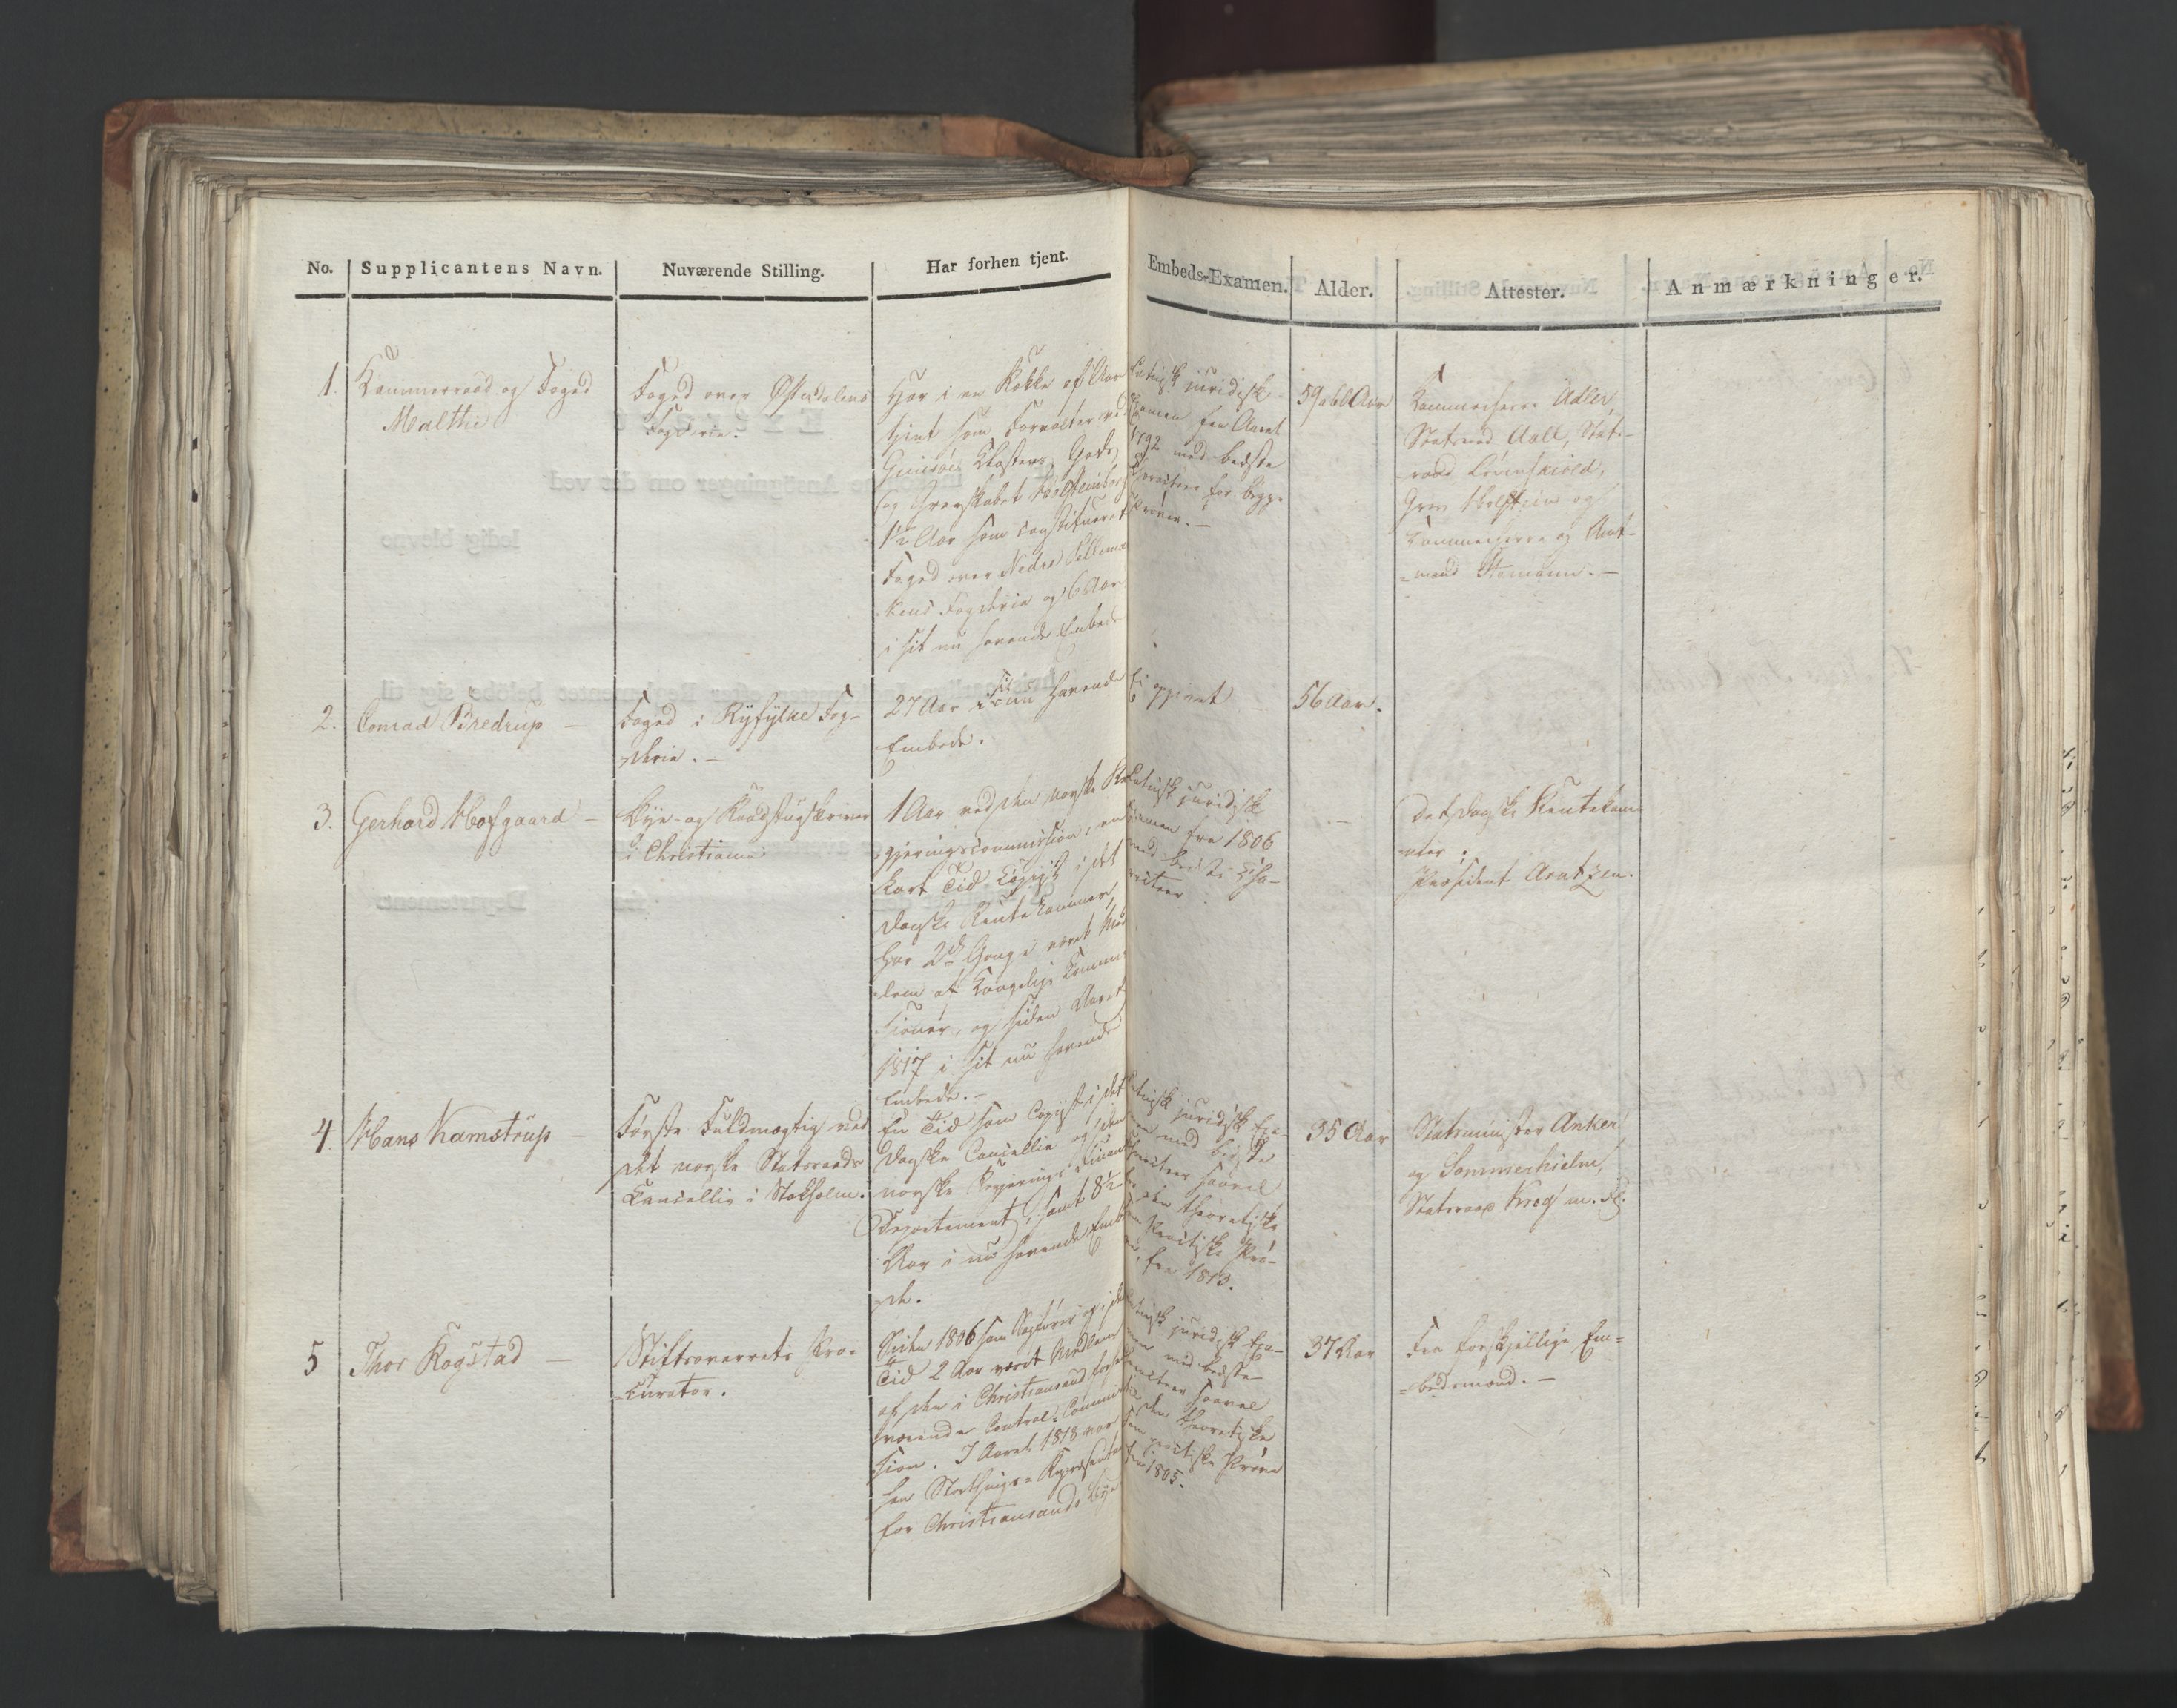 No. Supplicantens Navn. Nuværende Stilling. Har forhen tjent. Embeds-Examen. Alder. Attester. Anmærkninger.
1.
Kammerraad og Foged
Malthe
Foged over Østerdalens
Fogderie.
Har i en Række af Aar
tjent som Forvalter ved
Gimsøe Klosters Gods
og Grevskabet Holsteinborg
1½ Aar som constitueret
Foged over Nedre Tellemar
kens Fogderie og 6 Aar
i sit nu havende Embede
Latinsk juridisk
Examen fra Aaret
1792 med bedste
Characteer for begge
Prøver. —
59 a 60 Aar
Kammerherre Adler,
Statsraad Aall, Stats-
raad Løvenskiold,
Grev Holstein og
Kammerherre og Amt-
=mand Stemann. —
2.
Conrad Bredrup —
Foged i Ryfylke Fog-
derie. —
27 Aar i sit nu havende
Embede.
Ei opgivet —
56 Aar.
3.
Gerhard Hofgaard —
Bye- og Raadstueskriver
i Christiania
1 Aar ved den norske Re
gjeringscommission, en
kort Tid Copist i det
danske Rentekammer,
har 2de Gange været Med
lem af Kongelige Commis
sioner, og siden Aaret
1817 i sit nu havende
Embede. —
Latinsk juridisk
Examen fra 1806
med beste Cha-
racteer
. —
Det danske Rentekam
mer;
Præsident Arntzen.
4.
Hans Kamstrup —
Første Fuldmægtig ved
det norske Statsraads
Cancellie i Stokholm.
En Tid som Copist i det
danske Cancellie og den
norske Regjerings Finants
Departement, samt 8½
Aar i nu havende Embe
de.
Latinsk juridisk Exa-
men med bedste
Characteer saavel
for den theoretiske
som Practiske Prø-
ve, fra 1813.
35 Aar
Statsminister Anker,
og Sommerhielm,
Statsraad Krog m. Fl.
5
Thor Rogstad —
Stiftsoverrets Pro=
=curator.
Siden 1806 som Sagfører og i den
Tid 2 Aar været Medlem
af den i Christiansand forhen
værende Control=Commis
sion. I Aaret 1818 var
han Storthings=Repræsentant
for Christiansands Bye
Latinsk juridisk Exa-
men med bedste
Characteer saavel
for den theoretiske
som practiske Prøve
fra 1805.
37 Aar
Fra forskjellige Em=
=bedsmænd. —